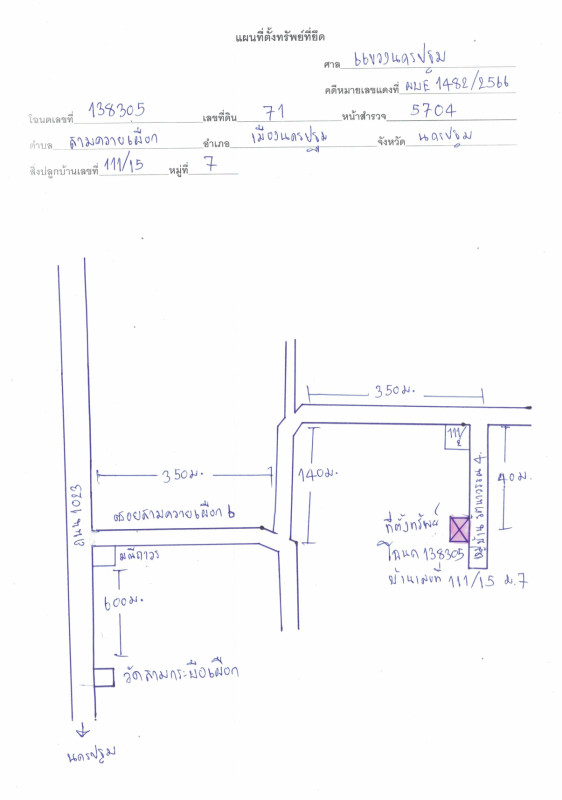 แผนที่ตั้งทรัพย์ที่ยึด
ศาล แขวงนครปฐม
คดีหมายเลขแดงที่ ผบE 1482/2566
โฉนดเลขที่ 138305 เลขที่ดิน 71 หน้าสำรวจ 5704
ตำบล สามควายเผือก อำเภอ เมืองนครปฐม จังหวัด นครปฐม
สิ่งปลูกบ้านเลขที่ 111/15 หมู่ที่ 7
350ม.
111/2
350ม.
140ม.
40ม.
ถนน 1023
ซอยสามควายเผือก 6
มณีถาวร
600ม.
ที่ตั้งทรัพย์
โฉนด 138305
บ้านเลขที่ 111/15 ม.7
4
วัดสามกระบือเผือก
นครปฐม